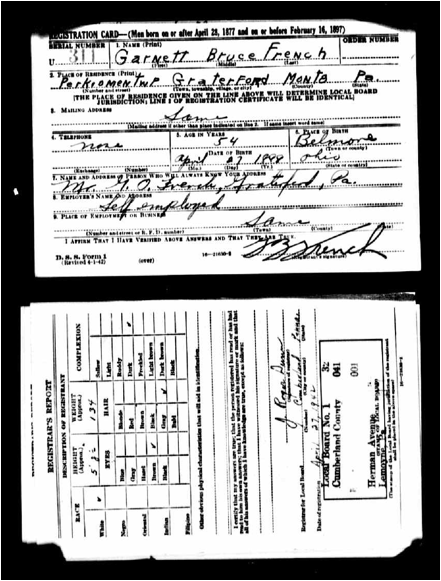 REGISTRATION CARD—(Men born on or after April 28, 1877 and on or before February 16, 1897)
SERIAL NUMBER 1. NAME (Print) ORDER NUMBER
U 311 Garnett Bruce French
(First) (Middle) (Last)
2. PLACE OF RESIDENCE (Print)
Perkiomen Twp Graterford Montg Pa.
(Number and street) (Town, township, village, or city) (County) (State)
[THE PLACE OF RESIDENCE GIVEN ON THE LINE ABOVE WILL DETERMINE LOCAL BOARD
JURISDICTION; LINE 2 OF REGISTRATION CERTIFICATE WILL BE IDENTICAL]
3. MAILING ADDRESS
Same
[Mailing address if other than place indicated on line 2. If same insert word same]
4. TELEPHONE 5. AGE IN YEARS 6. PLACE OF BIRTH
none 54 Belmore
DATE OF BIRTH (Town or county)
April 27 1888 Ohio
(Exchange) (Number) (Mo.) (Day) (Yr.) (State or country)
7. NAME AND ADDRESS OF PERSON WHO WILL ALWAYS KNOW YOUR ADDRESS
French, Graterford, Pa.
8. EMPLOYER'S NAME AND ADDRESS
Self employed
9. PLACE OF EMPLOYMENT OR BUSINESS
Same
(Number and street or R. F. D. number) (Town) (County) (State)
I AFFIRM THAT I HAVE VERIFIED ABOVE ANSWERS AND THAT THEY ARE TRUE.
D. S. S. Form 1
(Revised 4-1-42) (over) 16—21630-2 French
(Registrant's signature)
REGISTRAR'S REPORT
REGISTRAR'S REPORT
DESCRIPTION OF REGISTRANT
RACE HEIGHT (Approx.) WEIGHT (Approx.) COMPLEXION
5' 8 1/2 134
EYES HAIR
White Blue Blonde Sallow
Light
Negro Gray Red Ruddy
Dark
Oriental Hazel Brown Freckled
Brown Black Light brown
Indian Black Gray Dark brown
Bald Black
Filipino
Other obvious physical characteristics that will aid in identification
I certify that my answers are true; that the person registered has read or has had
read to him his own answers; that I have witnessed his signature or mark and that
all of his answers of which I have knowledge are true, except as follows:
Registrar for Local Board
(Number) (City or county) (State)
Date of registration April 27, 1942
Local Board No. 1 32
Cumberland County 041
001
Herman Avenue
Lemoyne, Pa.